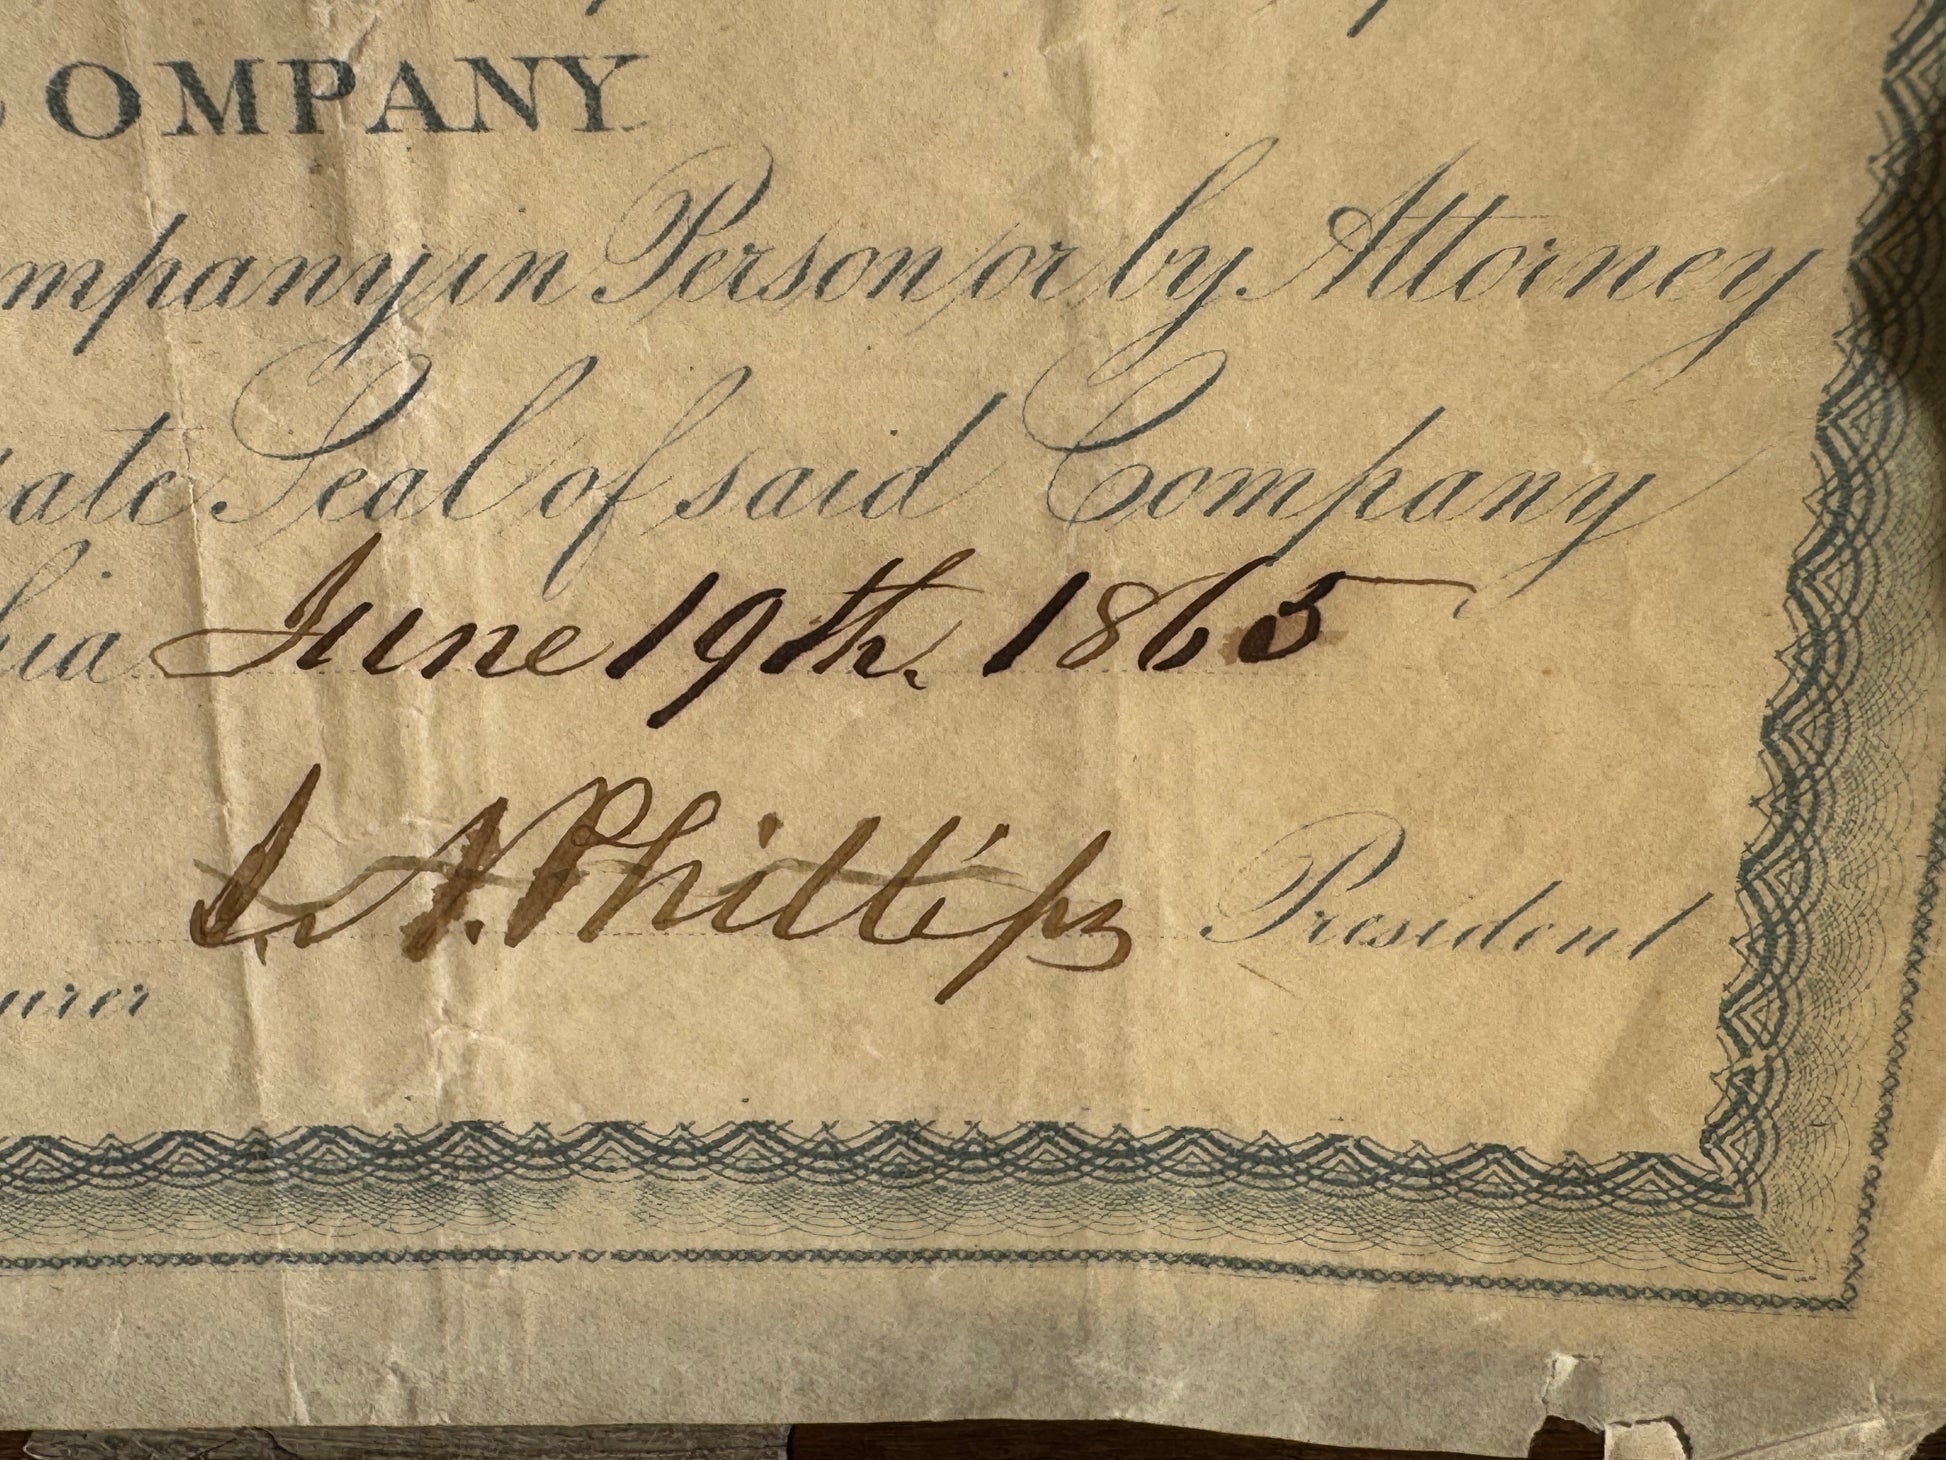 OMPANY
ompany in Person or by Attorney
ate Seal of said Company
hia June 19th. 1865
N. Phillips President
urer